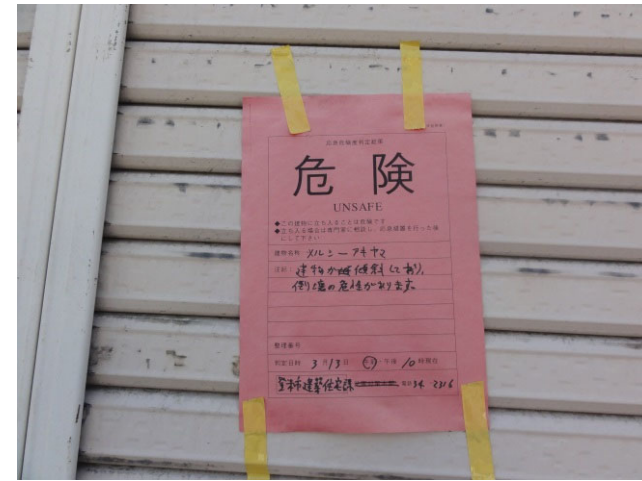 応急危険度判定結果
危険
UNSAFE
◆この建物に立ち入ることは危険です
◆立ち入る場合は専門家に相談し、応急措置を行った後
にして下さい
建物名称 メルシーアキヤマ
注記:建物が傾斜しており、
倒壊の危険があります
整理番号
判定日時 3月13日 午前・午後 10時現在
建築住宅課 電話34-2216